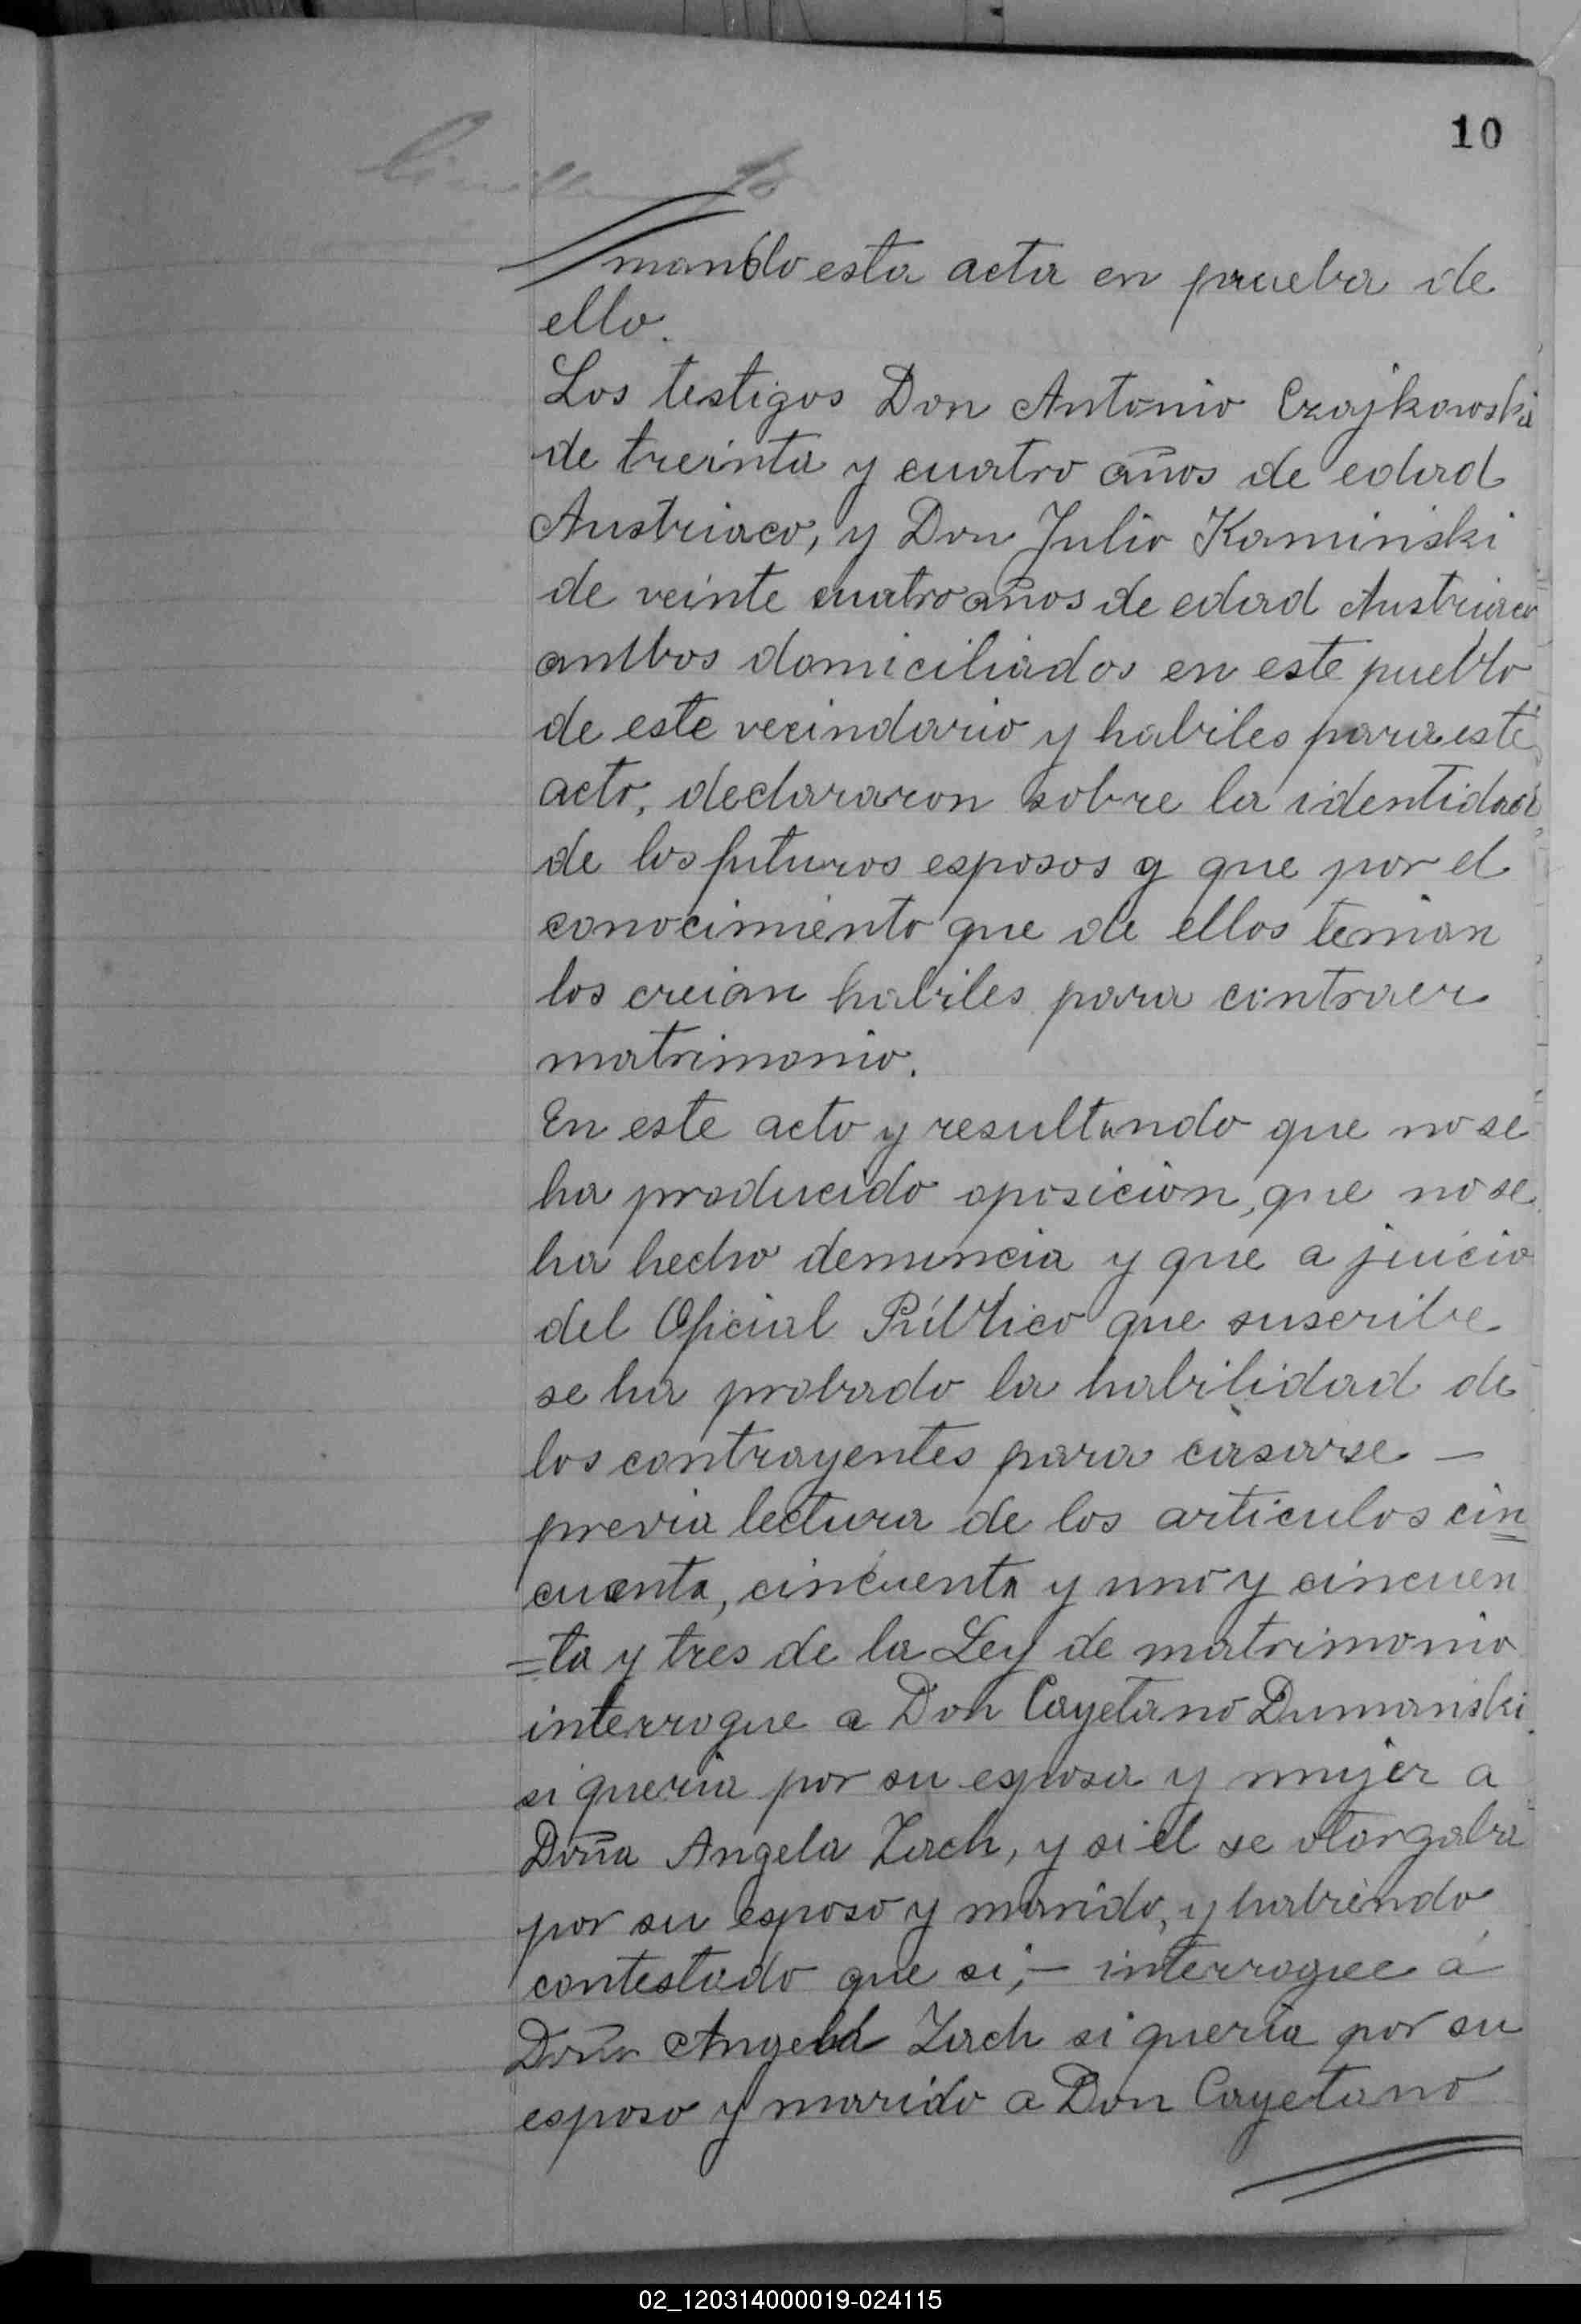 10
mando esta acta en prueba de
ello.
Los testigos Don Antonio Czajkowski
de treinta y cuatro años de edad
Austriaco, y Don Julio Kaminski
de veinte cuatro años de edad Austriaco
ambos domiciliados en este pueblo
de este vecindario y habiles para este
acto, declararon sobre la identidad
de los futuros esposos y que por el
conocimiento que de ellos tenian
los creian habiles para contraer
matrimonio.
En este acto y resultando que no se
ha producido oposicion, que no se
ha hecho denuncia y que a juicio
del Oficial Público que suscribe
se ha probado la habilidad de
los contrayentes para casarse —
previa lectura de los articulos cin
cuenta, cincuenta y uno y cincuen
=ta y tres de la Ley de matrimonio
interrogue a Don Cayetano Dumanski
si queria por su esposa y mujer a
Doña Angela Zach, y si el se otorgaba
por su esposo y marido, y habiendo
contestado que si;— interrogue á
Doña Angela Zach si queria por su
esposo y marido a Don Cayetano
02_120314000019-024115